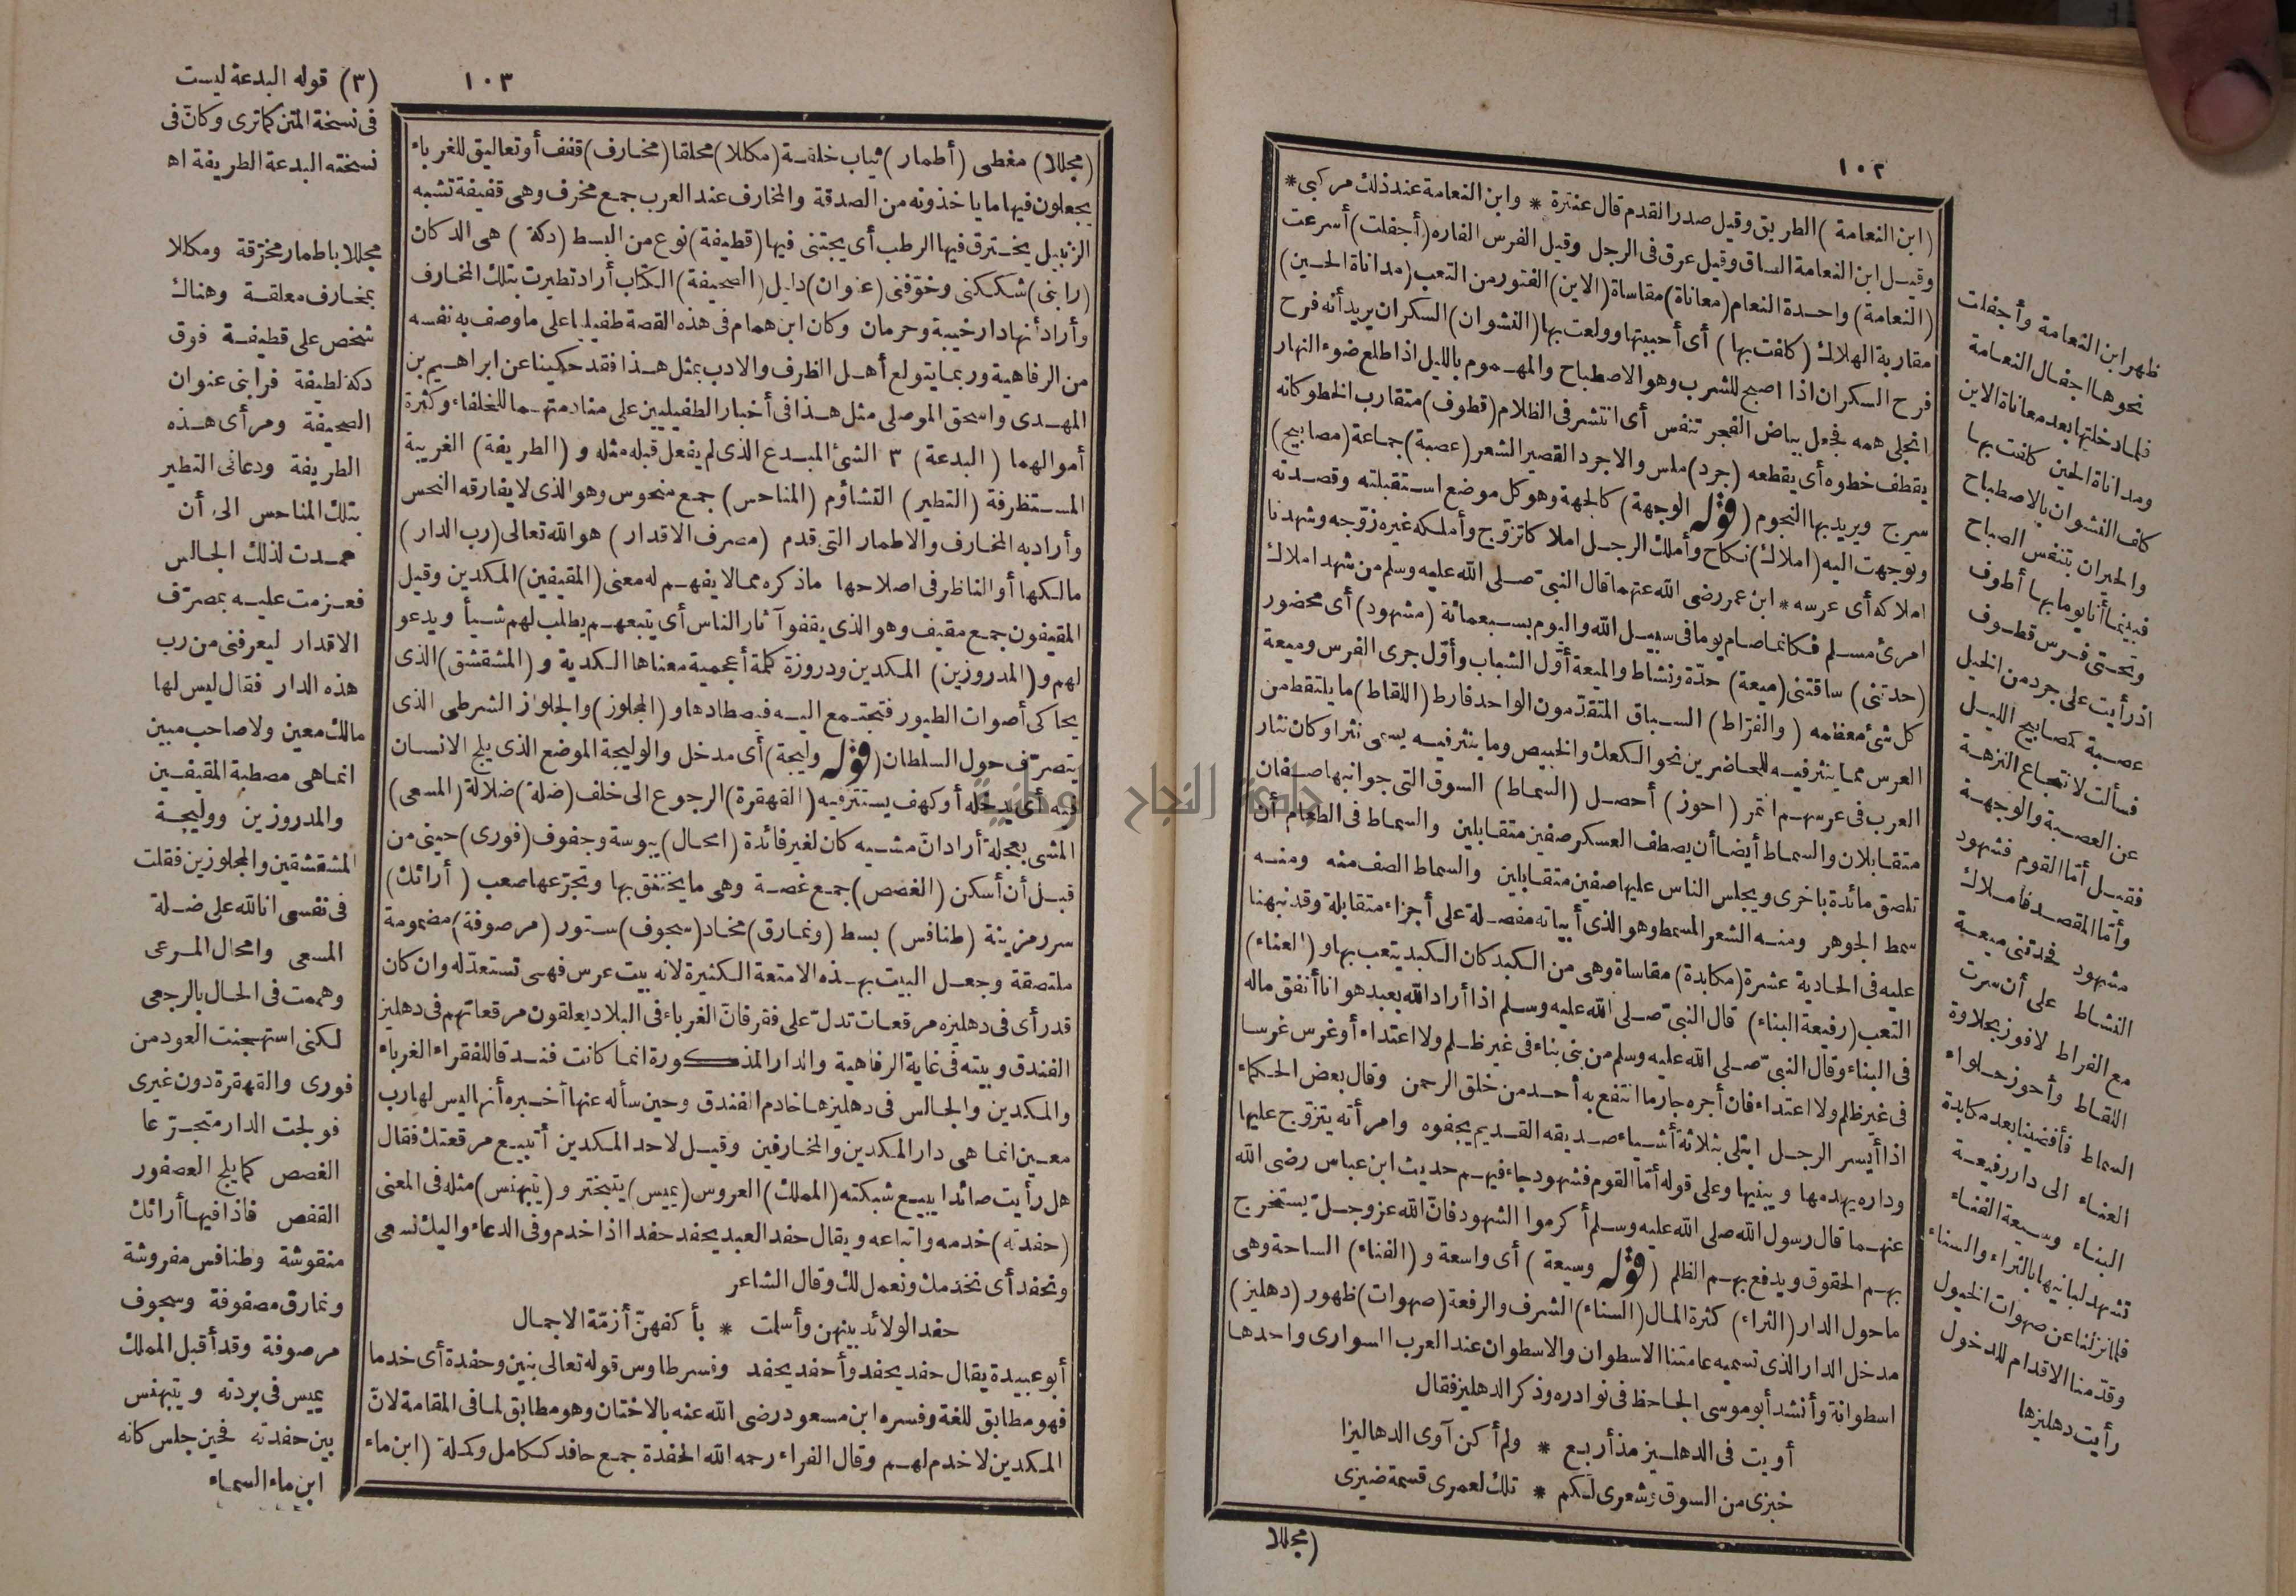 ١٠٢
(ابن النعامة) الطريق وقيل صدر القدم قال عنترة * وابن النعامة عند ذلك مركبي *
وقيل ابن النعامة الساق وقيل عرق فى الرجل وقيل الفرس الفاره (أجفلت) أسرعت
(النعامة) واحدة النعام (معاناة) مقاساة (الاين) الفتور من التعب (مداناة الحين)
مقاربة الهلاك (كلفت بها) أى أحببتها وولعت بها (النشوان) السكران يريد أنه فرح
فرح السكران اذا اصبح للشرب وهو الاصطباح والمهموم بالليل اذا طلع ضوء النهار
انجلى همه فجعل بياض الفجر تنفس أى انتشر فى الظلام (قطوف) متقارب الخطو كانه
يقطف خطوه أى يقطعه (جرد) ملس والاجرد القصير الشعر (عصبة) جماعة (مصابيح)
سرج ويريد بها النجوم (قوله الوجهة) كالجهة وهو كل موضع استقبلته وقصدته
وتوجهت اليه (املاك) نكاح وأملك الرجل املاكا تزوّج وأملكه غيره زوّجه وشهدنا
املاكه أى عرسه * ابن عمر رضى الله عنهما قال النبىّ صلى الله عليه وسلم من شهد املاك
امرئ مسلم فكانما صام يوما فى سبيل الله واليوم بسبعمائة (مشهود) أى محضور
(حدتنى) ساقتنى (ميعة) حدّة ونشاط والميعة أوّل الشباب وأوّل جرى الفرس وميعة
كل شئ معظمه (والفرّاط) السباق المتقدّمون الواحد فارط (اللقاط) ما يلتقط من
العرس مما ينثر فيه للحاضرين نحو الكعك والخبيص وما ينثر فيه يسمى نثرا وكان نثار
العرب فى عرسهم التمر (احوز) أحصل (السماط) السوق التى جوانبها صفان
متقابلان والسماط أيضا أن يصطف العسكر صفين متقابلين والسماط فى الطعام أن
تلصق مائدة باخرى ويجلس الناس عليها صفين متقابلين والسماط الصف منه ومنه
سمط الجوهر ومنه الشعر المسمط وهو الذى أبياته مفصلة على أجزاء متقابلة وقد نبهنا
عليه فى الحادية عشرة (مكابدة) مقاساة وهى من الكبد كان الكبد يتعب بها و (العناء)
التعب (رفيعة البناء) قال النبىّ صلى الله عليه وسلم اذا أراد الله بعبد هوانا أنفق ماله
فى البناء وقال النبىّ صلى الله عليه وسلم من بنى بناء فى غير ظلم ولا اعتداء أو غرس غرسا
فى غير ظلم ولا اعتداء فان أجره جار ما انتفع به أحد من خلق الرحمن وقال بعض الحكماء
اذا أيسر الرجل ابتلى بثلاثة أشياء صديقه القديم يجفوه وامرأته يتزوّج عليها
وداره يهدمها ويبنيها وعلى قوله أمّا القوم فشهود جاء فيهم حديث ابن عباس رضى الله
عنهما قال رسول الله صلى الله عليه وسلم أكرموا الشهود فانّ الله عز وجلّ يستخرج
بهم الحقوق ويدفع بهم الظلم (قوله وسيعة) أى واسعة و (الفناء) الساحة وهى
ما حول الدار (الثراء) كثرة المال (السناء) الشرف والرفعة (صهوات) ظهور (دهليز)
مدخل الدار الذى تسميه عامتنا الاسطوان والاسطوان عند العرب السوارى واحدها
اسطوانة وأنشد أبو موسى الجاحظ فى نوادره وذكر الدهليز فقال
أويت فى الدهليز مذ أربع * ولم أكن آوى الدهاليزا
خبزى من السوق وشعرى لكم * تلك لعمرى قسمة ضيزى
(مجللا
ظهر ابن النعامة وأجفلت
نحوها اجفال النعامة
فلما دخلتها بعد معاناة الاين
ومداناة الحين كلفت بها
كلف النشوان بالاصطباح
والحيران بتنفس الصباح
فبينما أنا يوما بها أطوف
وتحتى فرس قطوف
اذ رأيت على جرد من الخيل
عصبة كمصابيح الليل
فسألت لانتجاع النزهة
عن العصبة والوجهة
فقيل أمّا القوم فشهود
وأمّا المقصد فاملاك
مشهود فحدتنى ميعة
النشاط على أن سرت
مع الفراط لافوز بحلاوة
اللقاط وأحوز حلواء
السماط فأفضينا بعد مكابدة
العناء الى دار رفيعة
البناء وسيعة الفناء
تشهد لبانيها بالثراء والسناء
فلما نزلنا عن صهوات الخيول
وقدّمنا الاقدام للدخول
رأيت دهليزها
١٠٣
(مجللا) مغطى (أطمار) ثياب خلقة (مكللا) محلقا (مخارف) قفف أو تعاليق للغرباء
يجعلون فيها ما ياخذونه من الصدقة والمخارف عند العرب جمع مخرف وهى قفيفة تشبه
الزنبيل يخترق فيها الرطب أى يجتنى فيها (قطيفة) نوع من البسط (دكة) هى الدكان
(رابنى) شككنى وخوّفنى (عنوان) دليل (الصحيفة) الكتاب أراد تطيرت بتلك المخارف
وأراد أنها دار خيبة وحرمان وكان ابن همام فى هذه القصة طفيليا على ما وصف به نفسه
من الرفاهية وربما يتولع أهل الظرف والادب بمثل هذا فقد حكينا عن ابراهيم بن
المهدى واسحق الموصلى مثل هذا فى أخبار الطفيليين على منادمتهما للخلفاء وكثرة
أموالهما (البدعة) ٣ الشئ المبدع الذى لم يفعل قبله مثله و (الطريفة) الغريبة
المستظرفة (التطير) التشاؤم (المناحس) جمع منحوس وهو الذى لا يفارقه النحس
وأراد به المخارف والاطمار التى قدم (مصرف الاقدار) هو الله تعالى (رب الدار)
مالكها أو الناظر فى اصلاحها ماذكره مما لا يفهم له معنى (المقيفين) المكدين وقيل
المقيفون جمع مقيف وهو الذى يقفو آثار الناس أى يتبعهم يطلب لهم شيأ ويدعو
لهم و (المدروزين) المكدين ودروزة كلمة أعجمية معناها الكدية و (المشقشق) الذى
يحاكى أصوات الطيور فتجتمع اليه فيصطادها و (المجلوز) والجلواز الشرطى الذى
يتصرّف حول السلطان (قوله وليجة) أى مدخل والوليجة الموضع الذى يلج الانسان
فيه أى يدخله أو كهف يستترفيه (القهقرة) الرجوع الى خلف (ضلة) ضلالة (المسعى)
المشى بعجلة أراد ان مشيه كان لغير فائدة (امحال) يبوسة وجفوف (فورى) حينى من
قبل أن أسكن (الغصص) جمع غصة وهى ما يختنق بها وتجرّعها صعب (أرائك)
سرر مزينة (طنافس) بسط (ونمارق) مخاد (سجوف) ستور (مرصوفة) مضمومة
ملتصقة وجعل البيت بهذه الامتعة الكثيرة لانه بيت عرس فهى تستعدّ له وان كان
قد رأى فى دهليزه مرقعات تدلّ على فقر فانّ الغرباء فى البلاد يعلقون مرقعاتهم فى دهليز
الفندق وبيته فى غاية الرفاهية والدار المذكورة انما كانت فندقا للفقراء الغرباء
والمكدين والجالس فى دهليزها خادم الفندق وحين سأله عنها أخبره أنها ليس لها رب
معين انما هى دار المكدين والمخارفين وقيل لاحد المكدين أتبيع مرقعتك فقال
هل رأيت صائدا يبيع شبكته (المملك) العروس (يميس) يتبختر و (يتبهنس) مثله فى المعنى
(حفدته) خدمه واتباعه ويقال حفد العبد يحفد حفدا اذا خدم وفى الدعاء واليك نسعى
ونحفد أى نخدمك ونعمل لك وقال الشاعر
حفد الولائد بينهن وأسلمت * بأكفهنّ أزمّة الاجمال
أبو عبيدة يقال حفد يحفد وأحفد يحفد وفسر طاوس قوله تعالى بنين وحفدة أى خدما
فهو مطابق للغة وفسره ابن مسعود رضى الله عنه بالاختان وهو مطابق لما فى المقامة لانّ
المكدين لا خدم لهم وقال الفراء رحمه الله الحفدة جمع حافد ككامل وكملة (ابن ماء
(٣) قوله البدعة ليست
فى نسخة المتن كما ترى وكانّ فى
نسخته البدعة الطريفة اه
مجللا باطمار مخرّقة ومكللا
بمخارف معلقة وهناك
شخص على قطيفة فوق
دكة لطيفة فرابنى عنوان
الصحيفة ومرأى هذه
الطريفة ودعانى التطير
بتلك المناحس الى أن
عمدت لذلك الجالس
فعزمت عليه بمصرّف
الاقدار ليعرفنى من رب
هذه الدار فقال ليس لها
مالك معين ولا صاحب مبين
انما هى مصطبة المقيفين
والمدروزين ووليجة
المشقشقين والمجلوزين فقلت
فى نفسى انا لله على ضلة
المسعى وامحال المرعى
وهممت فى الحال بالرجعى
لكنى استهجنت العود من
فورى والقهقرة دون غيرى
فولجت الدار متجرّعا
الغصص كما يلج العصفور
القفص فاذا فيها أرائك
منقوشة وطنافس مفروشة
ونمارق مصفوفة وسجوف
مرصوفة وقد أقبل المملك
يميس فى بردته ويتبهنس
بين حفدته فحين جلس كانه
ابن ماء السماء
جامعة النجاح الوطنية